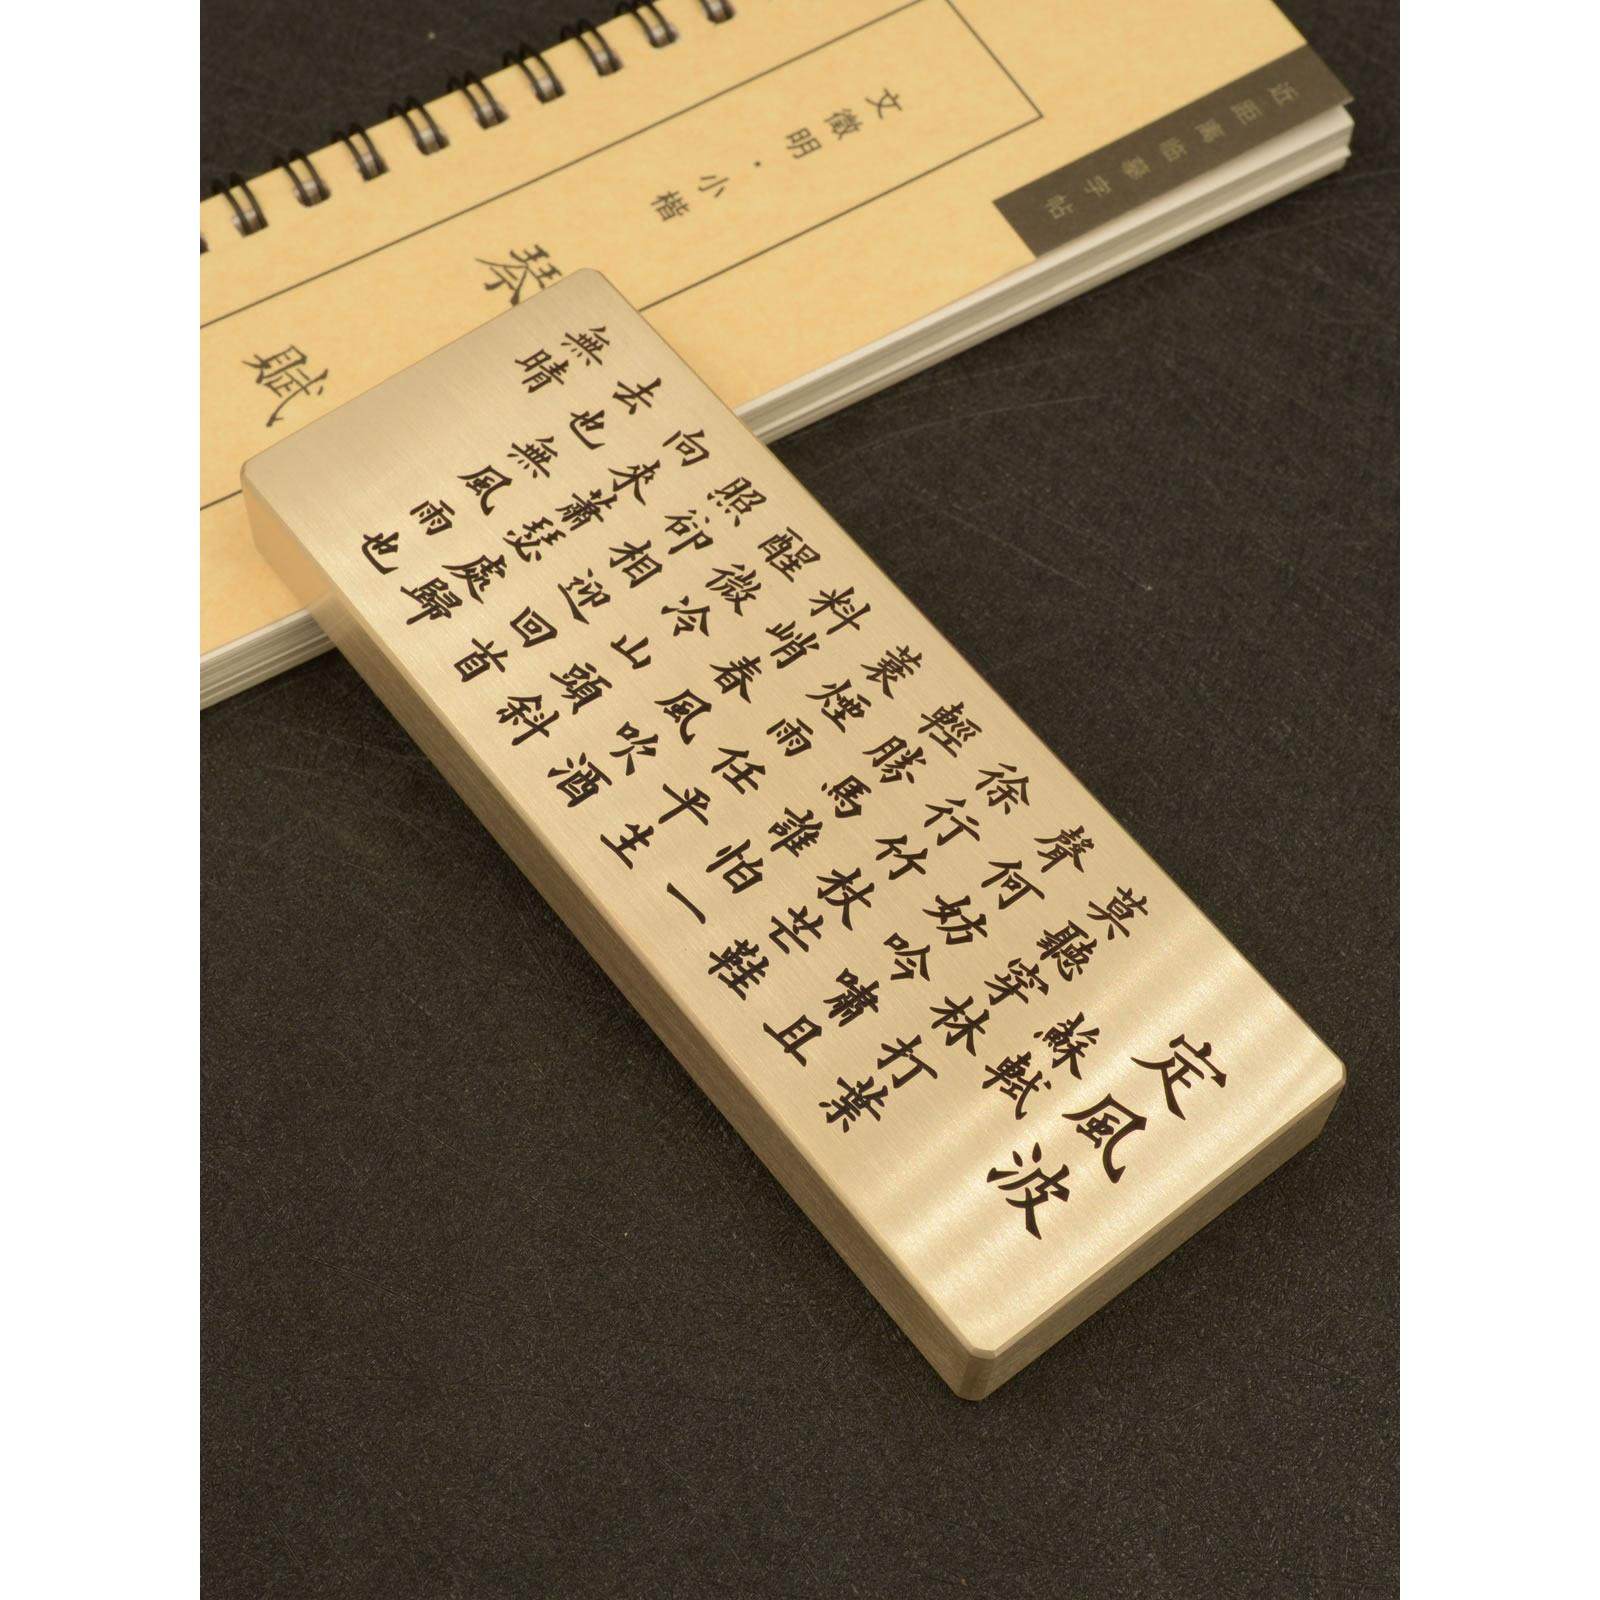 定風波
蘇軾
莫聽穿林打葉
聲何妨吟嘯且
徐行竹杖芒鞋
輕勝馬誰怕一
蓑煙雨任平生
料峭春風吹酒
醒微冷山頭斜
照卻相迎回首
向來蕭瑟處歸
去也無風雨也
無晴
近距离临摹字帖
文徵明·小楷
琴賦